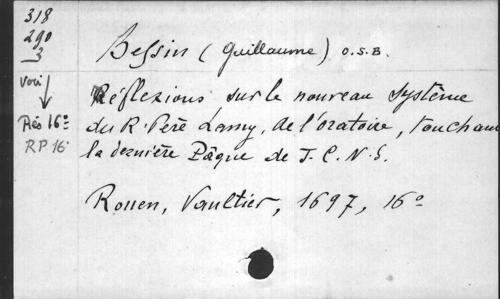 318
290
3
Bessin (Guillaume) O.S.B.
Voir
Réflexions sur le nouveau système
Rés 16°
du R. Père Lamy, de l'oratoire, touchant
RP 16°
la dernière Pâque de J. C. N. S.
Rouen, Vaultier, 1697, 16°